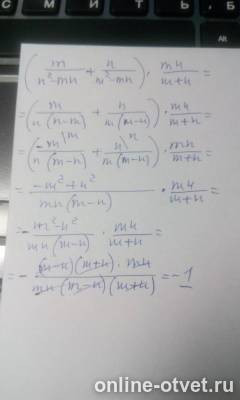 (m/(n²-mn) + n/(m²-mn)) · mn/(m+n) =
= (m/(n(n-m)) + n/(m(m-n))) · mn/(m+n) =
= (-m\m/(n(m-n)) + n\n/(m(m-n))) · mn/(m+n) =
= (-m²+n²)/(mn(m-n)) · mn/(m+n) =
= -(m²-n²)/(mn(m-n)) · mn/(m+n) =
= -((m-n)(m+n)·mn)/(mn(m-n)(m+n)) = -1
online-otvet.ru